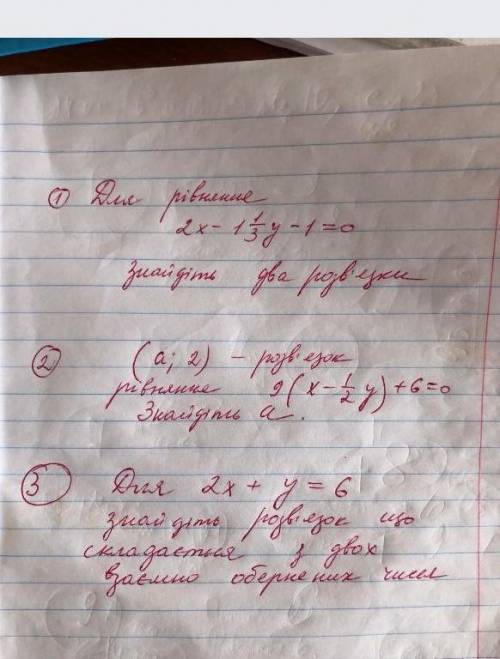 ① Для рівняння
2x - 1 1/3 y - 1 = 0
Знайдіть два розв'язки
② (a; 2) - розв'язок
рівняння 9(x - 1/2 y) + 6 = 0
Знайдіть a.
③ Для 2x + y = 6
знайдіть розв'язок що
складається з двох
взаємно обернених чисел